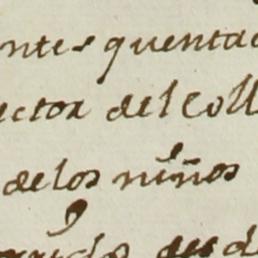 ntes quentad
ector del Coll
de los niños